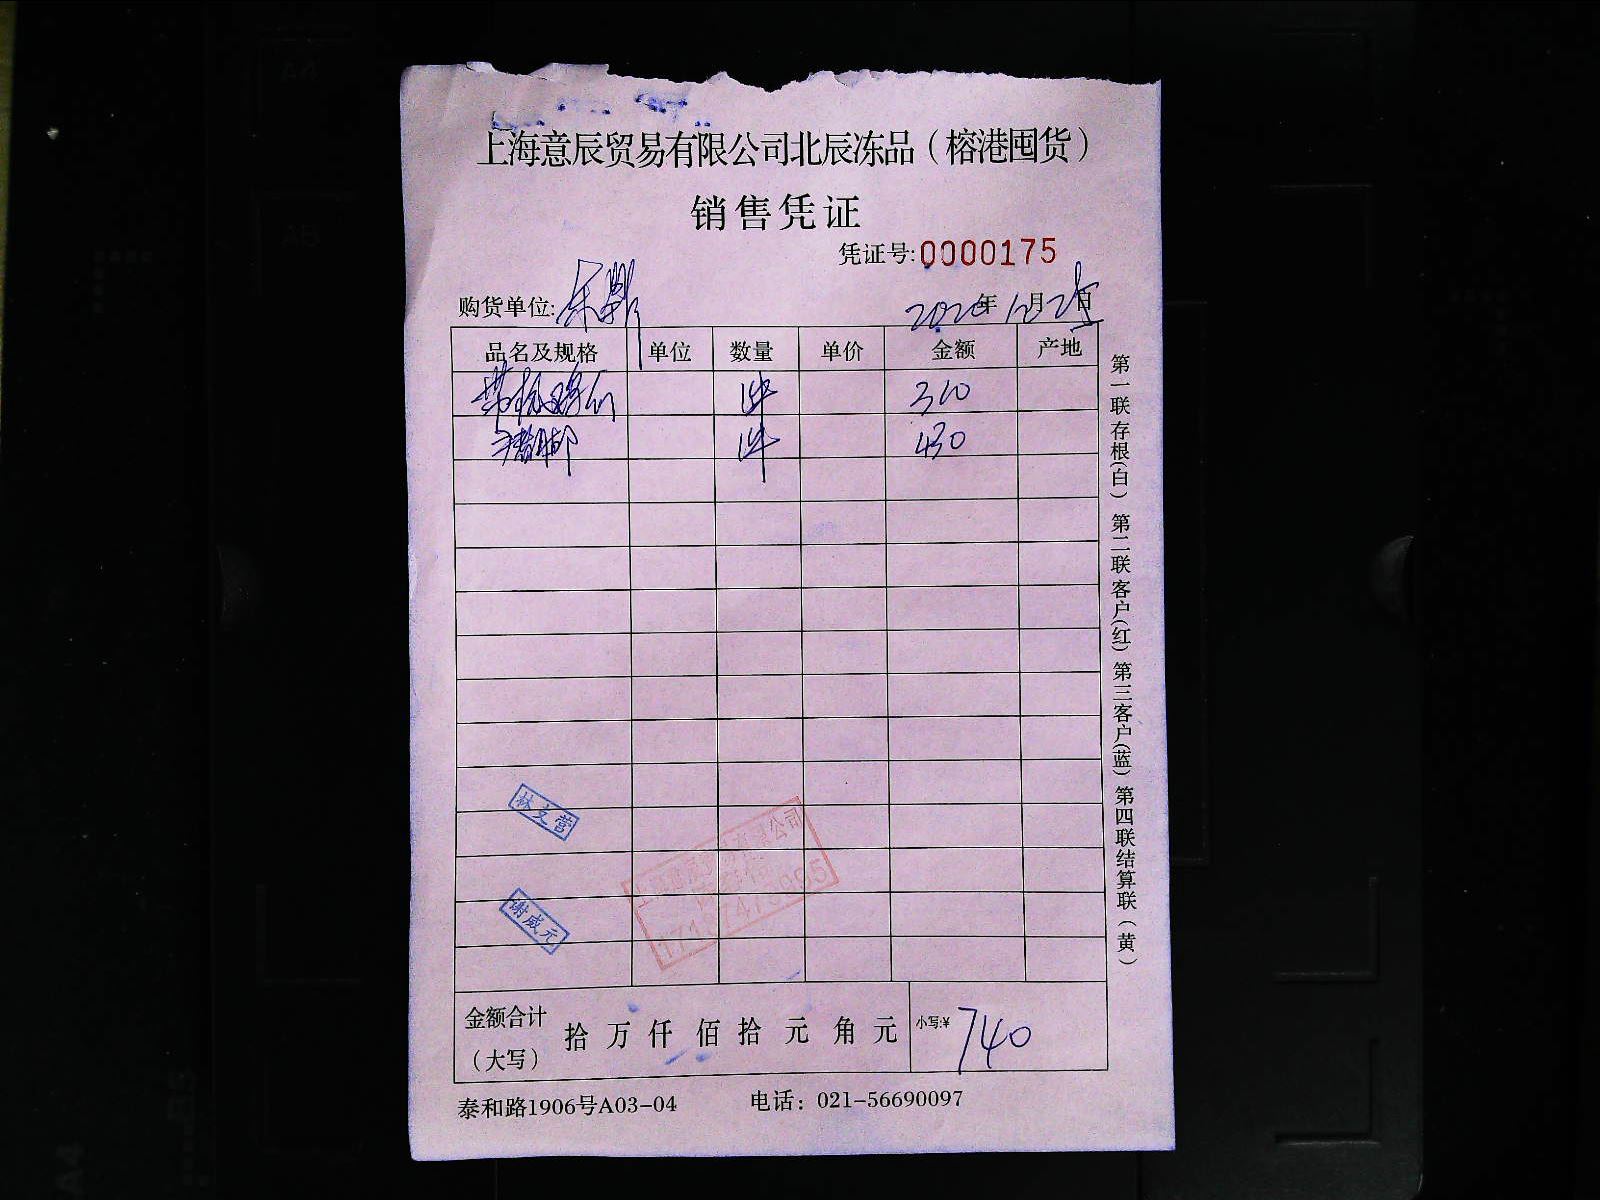 上海意辰贸易有限公司北辰冻品（榕港囤货）
销售凭证
凭证号:0000175
购货单位: 2020年12月25日
品名及规格 单位 数量 单价 金额 产地
1件 310
猪脚 1件 430
林文营
谢威元
金额合计（大写） 拾 万 仟 佰 拾 元 角 元 小写:¥ 740
泰和路1906号A03-04 电话：021-56690097
第一联存根(白) 第二联客户(红) 第三客户(蓝) 第四联结算联（黄）